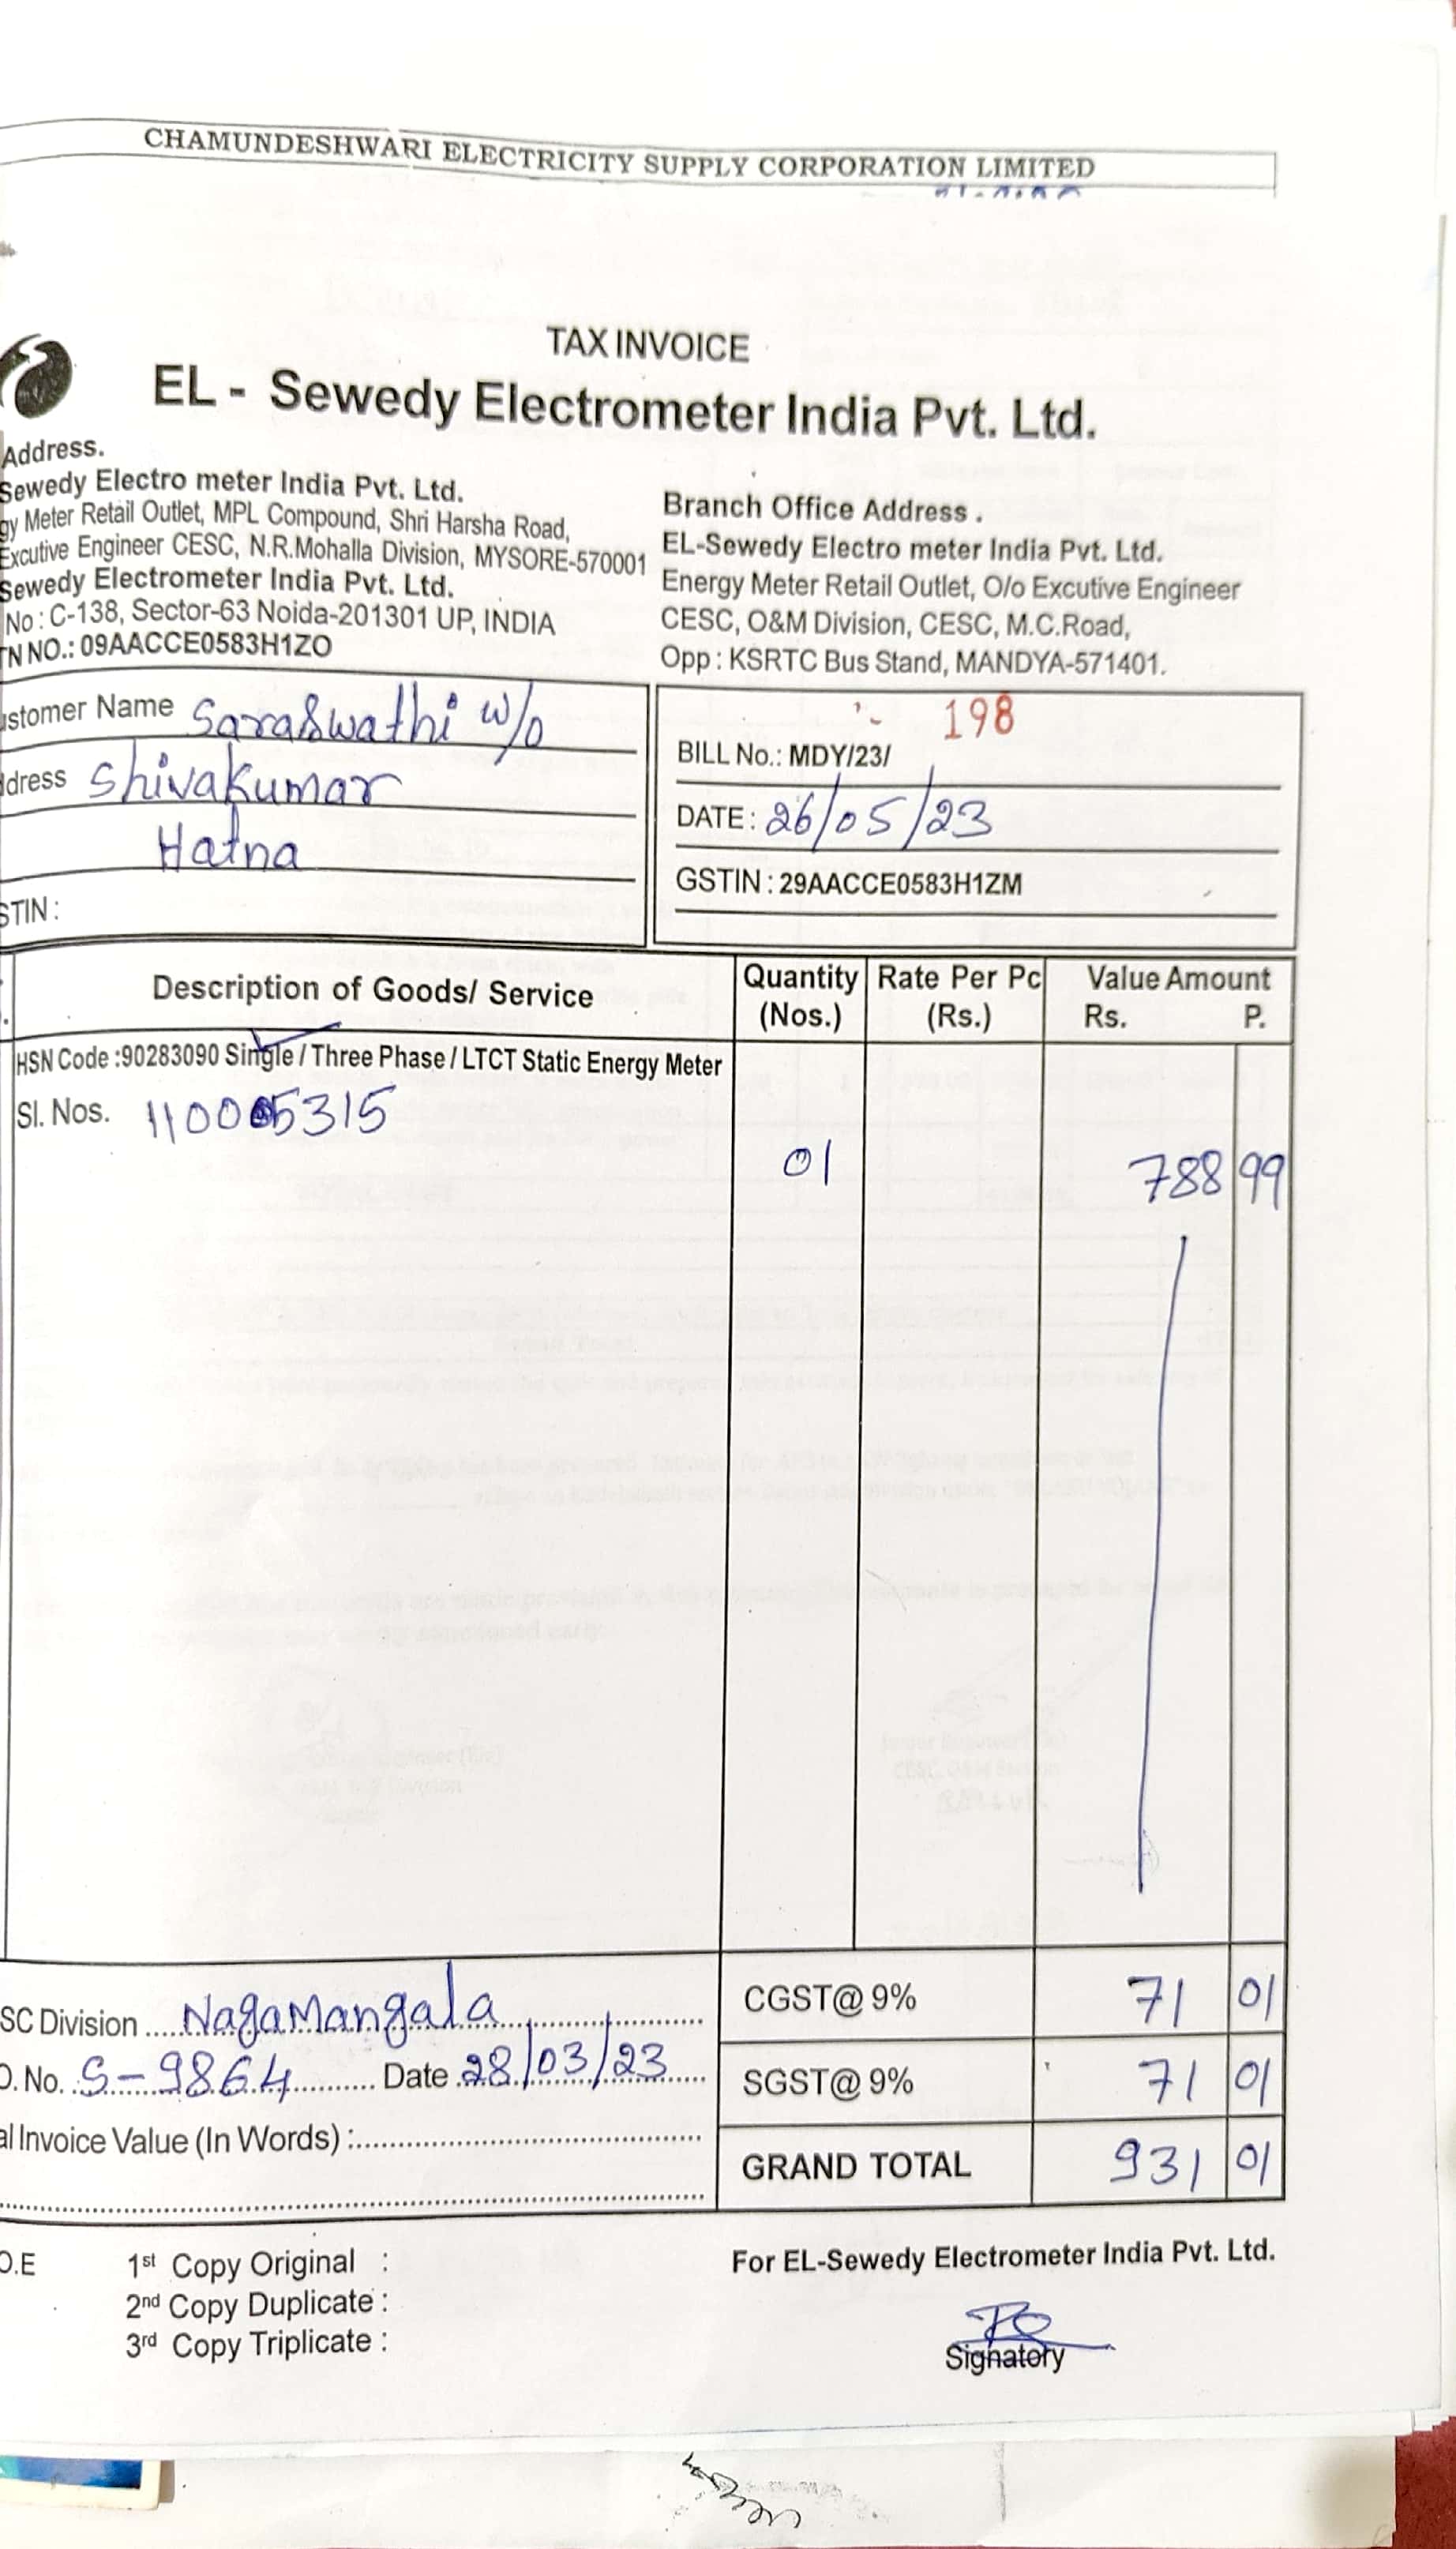 CHAMUNDESHWARI ELECTRICITY SUPPLY CORPORATION LIMITED
TAX INVOICE
EL - Sewedy Electrometer India Pvt. Ltd.
Address.
Sewedy Electro meter India Pvt. Ltd.
gy Meter Retail Outlet, MPL Compound, Shri Harsha Road,
Excutive Engineer CESC, N.R.Mohalla Division, MYSORE-570001
Sewedy Electrometer India Pvt. Ltd.
No : C-138, Sector-63 Noida-201301 UP, INDIA
TN NO.: 09AACCE0583H1ZO
Branch Office Address .
EL-Sewedy Electro meter India Pvt. Ltd.
Energy Meter Retail Outlet, O/o Excutive Engineer
CESC, O&M Division, CESC, M.C.Road,
Opp : KSRTC Bus Stand, MANDYA-571401.
ustomer Name Saraswathi w/o
dress Shivakumar
Hatna
STIN :
198
BILL No.: MDY/23/
DATE : 26/05/23
GSTIN : 29AACCE0583H1ZM
Description of Goods/ Service Quantity (Nos.) Rate Per Pc (Rs.) Value Amount Rs. P.
HSN Code :90283090 Single / Three Phase / LTCT Static Energy Meter
Sl. Nos. 11005315
01 788 99
SC Division NagaMangala CGST@ 9% 71 01
O. No. S-9864 Date 28/03/23 SGST@ 9% 71 01
al Invoice Value (In Words) : GRAND TOTAL 931 01
O.E 1st Copy Original :
2nd Copy Duplicate :
3rd Copy Triplicate :
For EL-Sewedy Electrometer India Pvt. Ltd.
Signatory